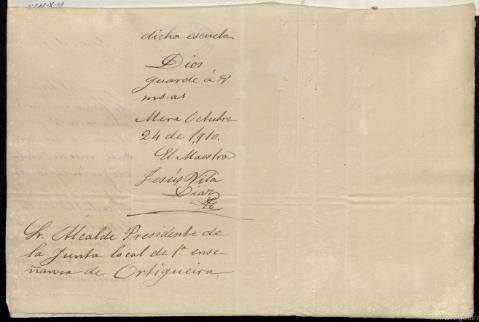 dicha escuela.
Dios
guarde á V.
ms. as
Mera Octubre
24 de 1910.
El Maestro
Jesús Vila
Diaz
Sr. Alcalde Presidente de
la Junta local de 1ª ense
ñanza de Ortigueira.